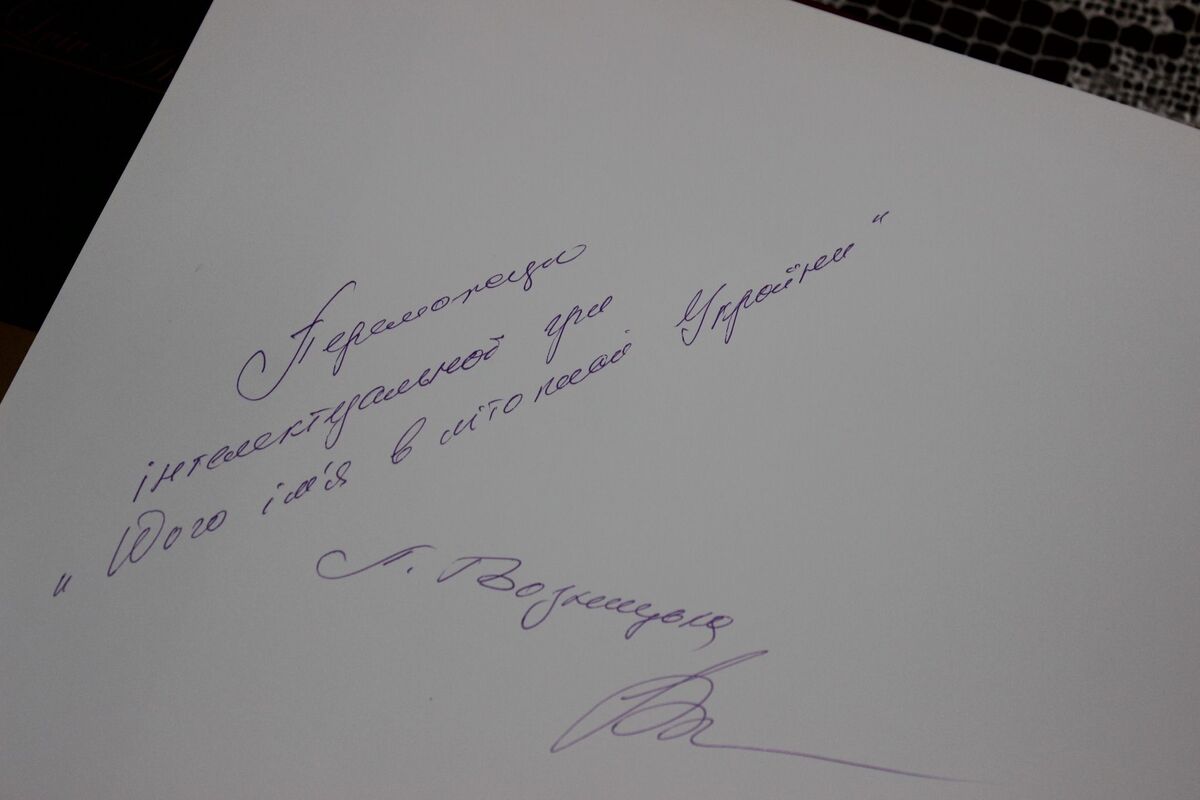 Переможцю
інтелектуальної гри
„ Його ім'я в літописі України “
Л. Возницька